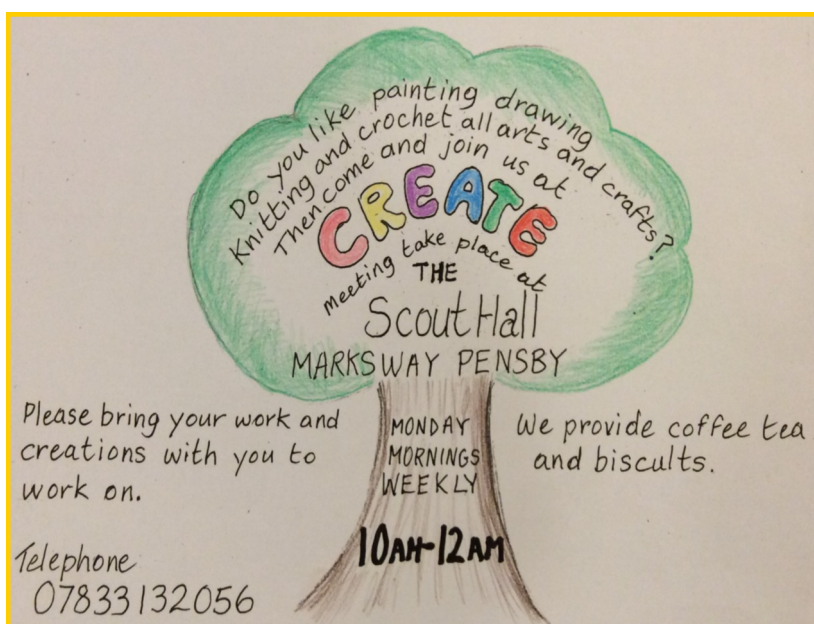 Do you like painting drawing
Knitting and crochet all arts and crafts?
Then come and join us at
CREATE
meeting take place at
THE
Scout Hall
MARKSWAY PENSBY
Please bring your work and
creations with you to
work on.
MONDAY
MORNINGS
WEEKLY
10AM-12AM
We provide coffee tea
and biscults.
Telephone
07833132056